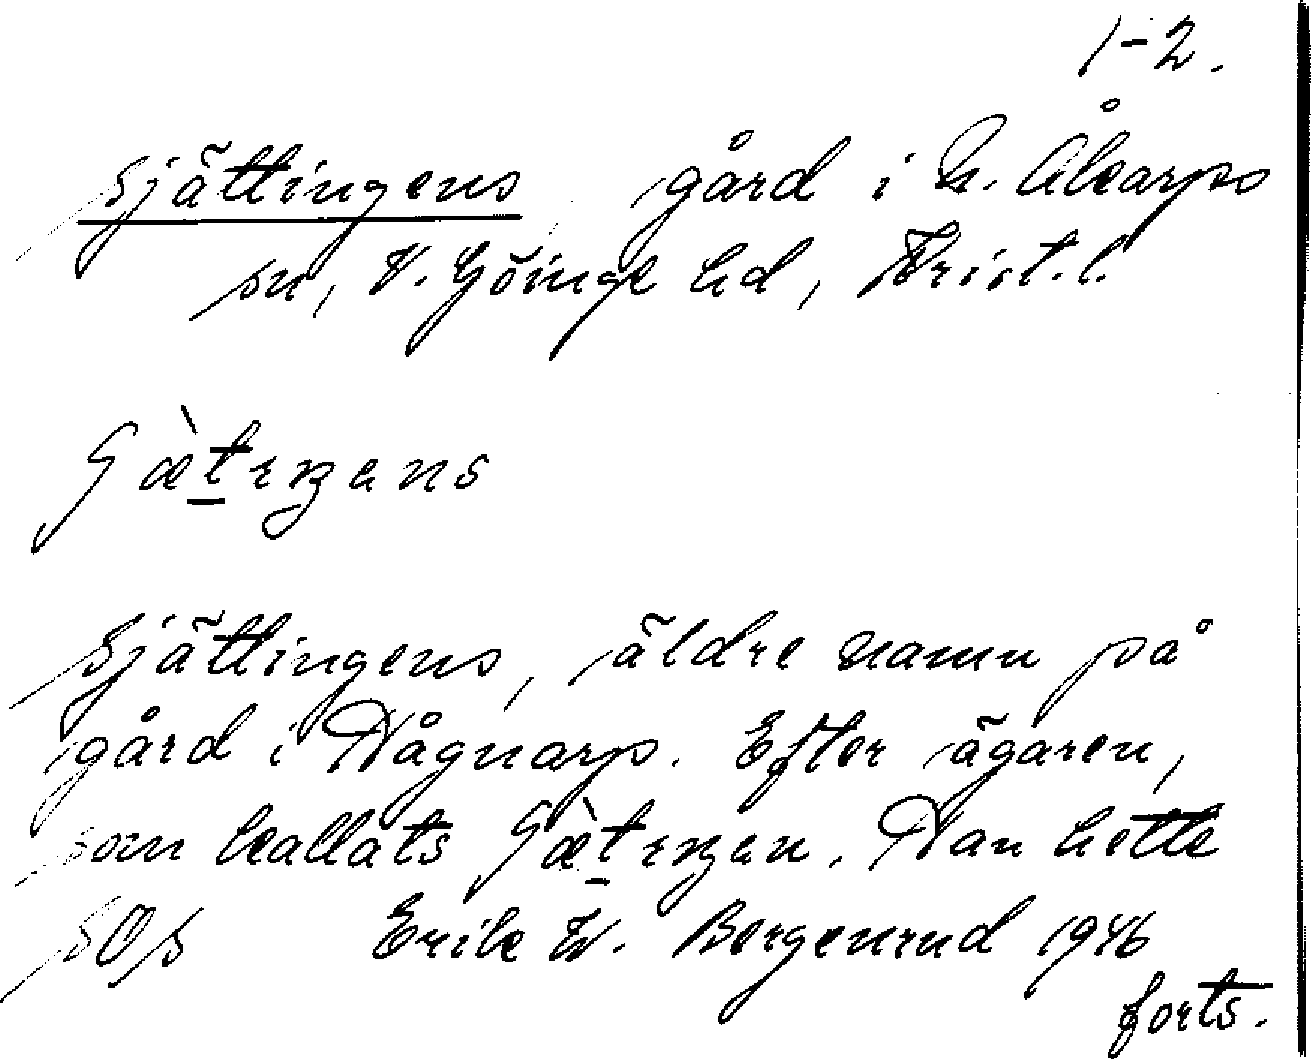 1-2.
Sjättingens gård i N. Åkarps
sn, V. Göinge hd, Krist.l.
ʃæ̀tɪŋens
Sjättingens, äldre namn på
gård i Hågnarp. Efter ägaren,
som kallats ʃæ̀tɪŋen. Han hette
SOS Erik W. Bergenrud 1946
forts.